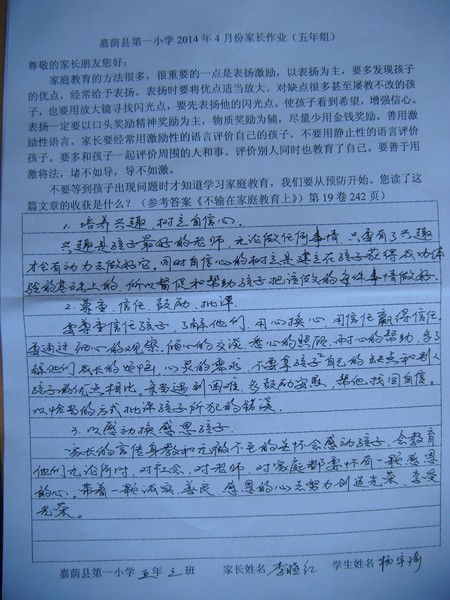 嘉荫县第一小学2014年4月份家长作业（五年组）
尊敬的家长朋友您好：
家庭教育的方法很多，很重要的一点是表扬激励，以表扬为主，要多发现孩子
的优点，经常给予表扬。表扬时要将优点适当放大。对缺点很多甚至屡教不改的孩
子，也要用放大镜寻找闪光点，要先表扬他的闪光点，使孩子看到希望，增强信心。
表扬一定要以口头奖励精神奖励为主，物质奖励为辅，尽量少用金钱奖励。善用激
励性语言，家长要经常用激励性的语言评价自己的孩子，不要用静止性的语言评价
孩子。要多和孩子一起评价周围的人和事。评价别人同时也教育了自己。要善于用
激将法，堵不如导，导不如激。
不要等到孩子出现问题时才知道学习家庭教育，我们要从预防开始。您读了这
篇文章的收获是什么？（参考答案《不输在家庭教育上》）第19卷242页）
1. 培养兴趣 树立自信心.
兴趣是孩子最好的老师，无论做任何事情，只要有了兴趣
才会有动力去做好它。同时自信心的树立是建立在孩子获得成功体
验的基础上的，所以督促和帮助孩子把该做的每件事情做好。
2. 尊重、信任、鼓励、批评
要尊重信任孩子，了解他们，用心换心，用信任赢得信任。
要通过细心的观察，倾心的交谈，悉心的照顾，耐心的帮助，去了
解他们成长的烦恼，心灵的需求，不要拿孩子自己的缺点和别人
孩子的优点相比。每当遇到困难，多鼓励安慰，帮他找回自信。
以恰当的方式批评孩子所犯的错误。
3. 以感动换感恩孩子.
家长的言传身教和无微不至的关怀会感动孩子，会教育
他们无论何时，对社会、对老师、对家庭都要怀有一颗感恩
的心，带着一颗诚实、善良、感恩的心去努力创造光荣、享受
光荣。
嘉荫县第一小学五年三班 家长姓名 李晓红 学生姓名 杨